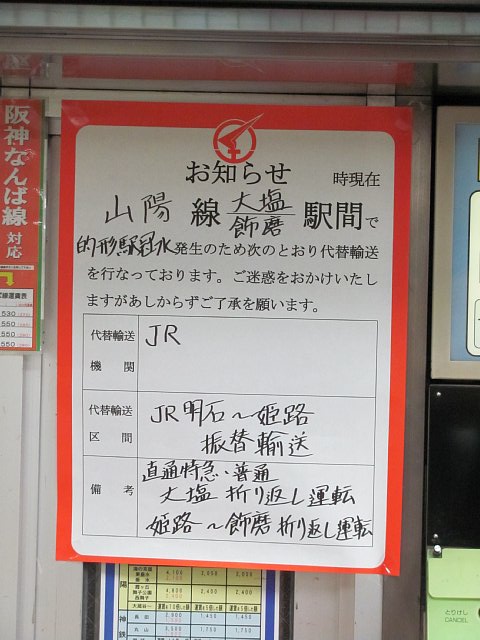 阪神なんば線
対応
530
550
550
550
お知らせ
時現在
山陽 線 大塩 駅間で
飾磨
的形駅冠水発生のため次のとおり代替輸送
を行なっております。ご迷惑をおかけいたし
ますがあしからずご了承を願います。
代替輸送
機関
JR
代替輸送
区間
JR明石~姫路
振替輸送
備考
直通特急・普通
大塩 折り返し運転
姫路~飾磨折り返し運転
とりけし
CANCEL